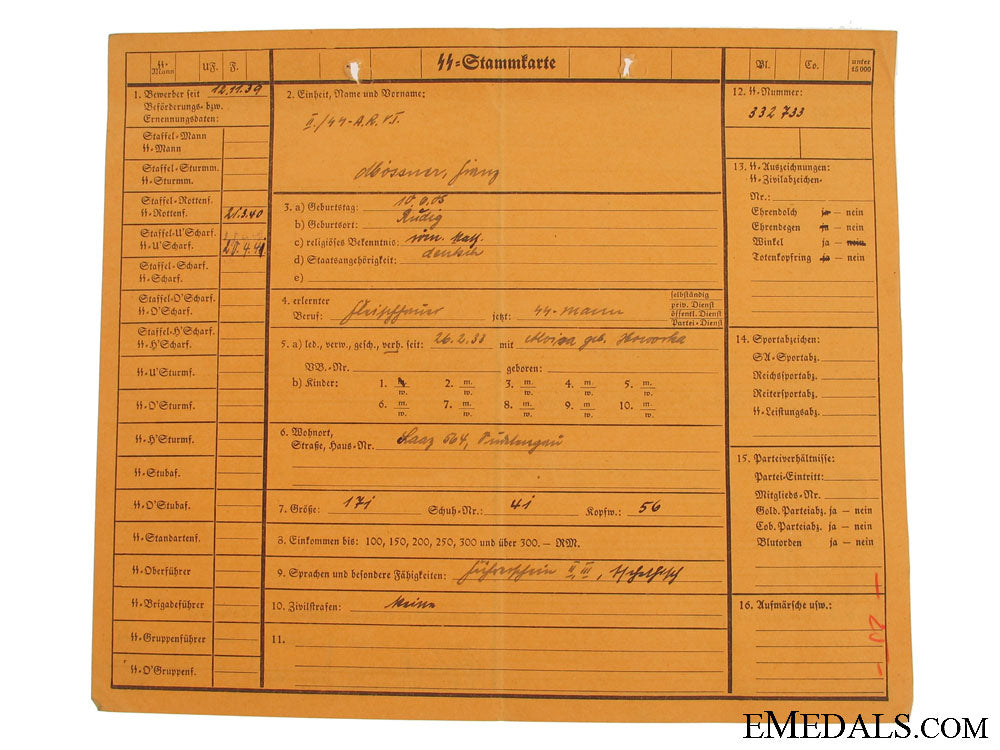 SS-Mann UF. F.
SS-Stammkarte
Pl. Co. unter 15 000
1. Bewerber seit 12.11.39
Beförderungs- bzw.
Ernennungsdaten:
Staffel-Mann
SS-Mann
Staffel-Sturmm.
SS-Sturmm.
Staffel-Rottenf.
SS-Rottenf. 21.3.40
Staffel-U'Scharf.
SS-U'Scharf. 20.4.41
Staffel-Scharf.
SS-Scharf.
Staffel-O'Scharf.
SS-O'Scharf.
Staffel-H'Scharf.
SS-H'Scharf.
SS-U'Sturmf.
SS-O'Sturmf.
SS-H'Sturmf.
SS-Stubaf.
SS-O'Stubaf.
SS-Standartenf.
SS-Oberführer
SS-Brigadeführer
SS-Gruppenführer
SS-O'Gruppenf.
2. Einheit, Name und Vorname:
II./SS-A.R.V.T.
Mossner, Franz
3. a) Geburtstag: 10.6.05
b) Geburtsort: Rudig
c) religiöses Bekenntnis: röm. kath.
d) Staatsangehörigkeit: deutsch
e)
4. erlernter
Beruf: Fleischhauer jetzt: SS-Mann
selbständig
priv. Dienst
öffentl. Dienst
Partei-Dienst
5. a) led., verw., gesch., verh. seit: 26.2.33 mit Aloisia geb. Howorka
VB.-Nr. geboren:
b) Kinder: 1. w. 2. m. w. 3. m. w. 4. m. w. 5. m. w.
6. m. w. 7. m. w. 8. m. w. 9. m. w. 10. m. w.
6. Wohnort,
Straße, Haus-Nr. Saaz 564, Sudetengau
7. Größe: 171 Schuh-Nr.: 41 Kopfw.: 56
8. Einkommen bis: 100, 150, 200, 250, 300 und über 300.— RM.
9. Sprachen und besondere Fähigkeiten: Führerschein II, III, tschechisch
10. Zivilstrafen: keine
11.
12. SS-Nummer:
332 733
13. SS-Auszeichnungen:
SS-Zivilabzeichen-
Nr.:
Ehrendolch ja — nein
Ehrendegen ja — nein
Winkel ja — nein
Totenkopfring ja — nein
14. Sportabzeichen:
SA-Sportabz.
Reichsportabz.
Reitersportabz.
SS-Leistungsabz.
15. Parteiverhältnisse:
Partei-Eintritt:
Mitglieds-Nr.
Gold. Parteiabz. ja — nein
Cob. Parteiabz. ja — nein
Blutorden ja — nein
16. Aufmärsche usw.:
EMEDALS.COM